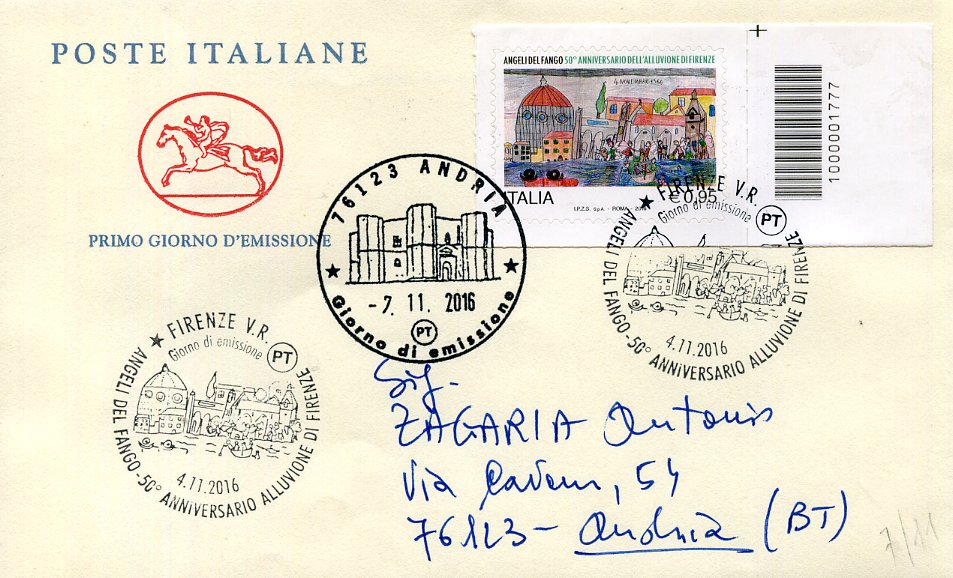 POSTE ITALIANE
PRIMO GIORNO D'EMISSIONE
ANGELI DEL FANGO 50° ANNIVERSARIO DELL'ALLUVIONE DI FIRENZE
4 NOVEMBRE 1966
ITALIA
€ 0,95
I.P.Z.S. S.p.A. - ROMA -
1000001777
76123 ANDRIA
-7. 11. 2016
PT
Giorno di emissione
FIRENZE V.R.
Giorno di emissione
PT
4.11.2016
ANGELI DEL FANGO-50° ANNIVERSARIO ALLUVIONE DI FIRENZE
FIRENZE V.R.
Giorno di emissione
PT
4.11.2016
ANGELI DEL FANGO-50° ANNIVERSARIO ALLUVIONE DI FIRENZE
Sig.
ZAGARIA Antonio
Via 54
76123- Andria (BT)
7/11